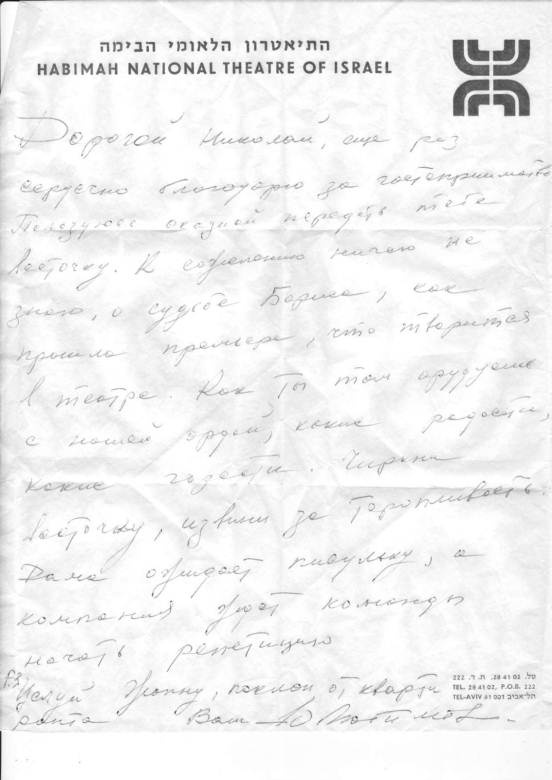 התיאטרון הלאומי הבימה
HABIMAH NATIONAL THEATRE OF ISRAEL
Дорогой Николай, еще раз
сердечно благодарю за гостеприимство
Пользуюсь оказией передать тебе
весточку. К сожалению ничего не
знаю, о судьбе Бориса, как
прошла премьера, что творится
в театре. Как Ты там орудуешь
с нашей ордой, какие радости,
какие гадости. Черкни
весточку, извини за торопливость.
Дама ожидает писульку, а
компания ждет команды
начать репетицию
P.S. Целуй Жопну, поклон от кварти
рантa Ваш Ю Любимов.
טל. 28 41 02. ת. ד. 222
TEL. 28 41 02, P.O.B. 222
TEL-AVIV 61 001 תל-אביב